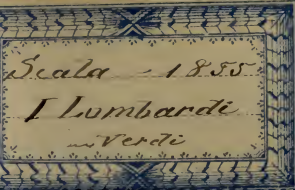 Scala - 1855
I Lombardi
Verdi